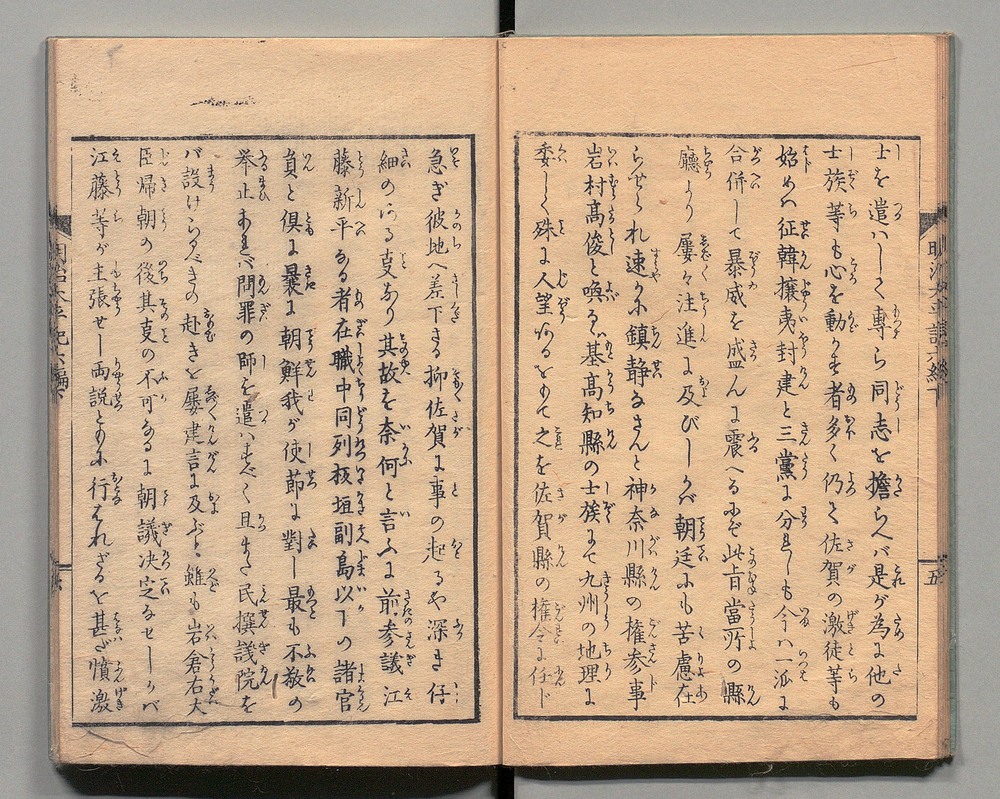 士を遣ハして専ら同志を擔らへバ是が為に他の
士族等も心を動かす者多く仍て佐賀の激徒等も
始めハ征韓攘夷封建と三黨に分れしも今ハ一派に
合併して暴威を盛んに震へるにぞ此旨當所の縣
廳より屡々注進に及びしかバ朝廷にも苦慮在
らせられ速かに鎮静なさんと神奈川縣の権参事
岩村高俊と喚るハ基高知縣の士族にて九州の地理に
委しく殊に人望あるをもて之を佐賀縣の権令に任ド
急ぎ彼地へ差下さる抑佐賀に事の起るや深き仔
細のある事あり其故を奈何と言ふに前参議江
藤新平なる者在職中同列板垣副島以下の諸官
員と倶に曩に朝鮮我が使節に對し最も不敬の
举止あれバ問罪の師を遣ハすべく且また民撰議院を
バ設けらるべきの赴きを屡建言に及ぶと雖も岩倉右大
臣帰朝の後其事の不可なるに朝議决定なせしかバ
江藤等が主張せし両説ともに行はれざるを甚だ憤激
明治太平記六編下
五